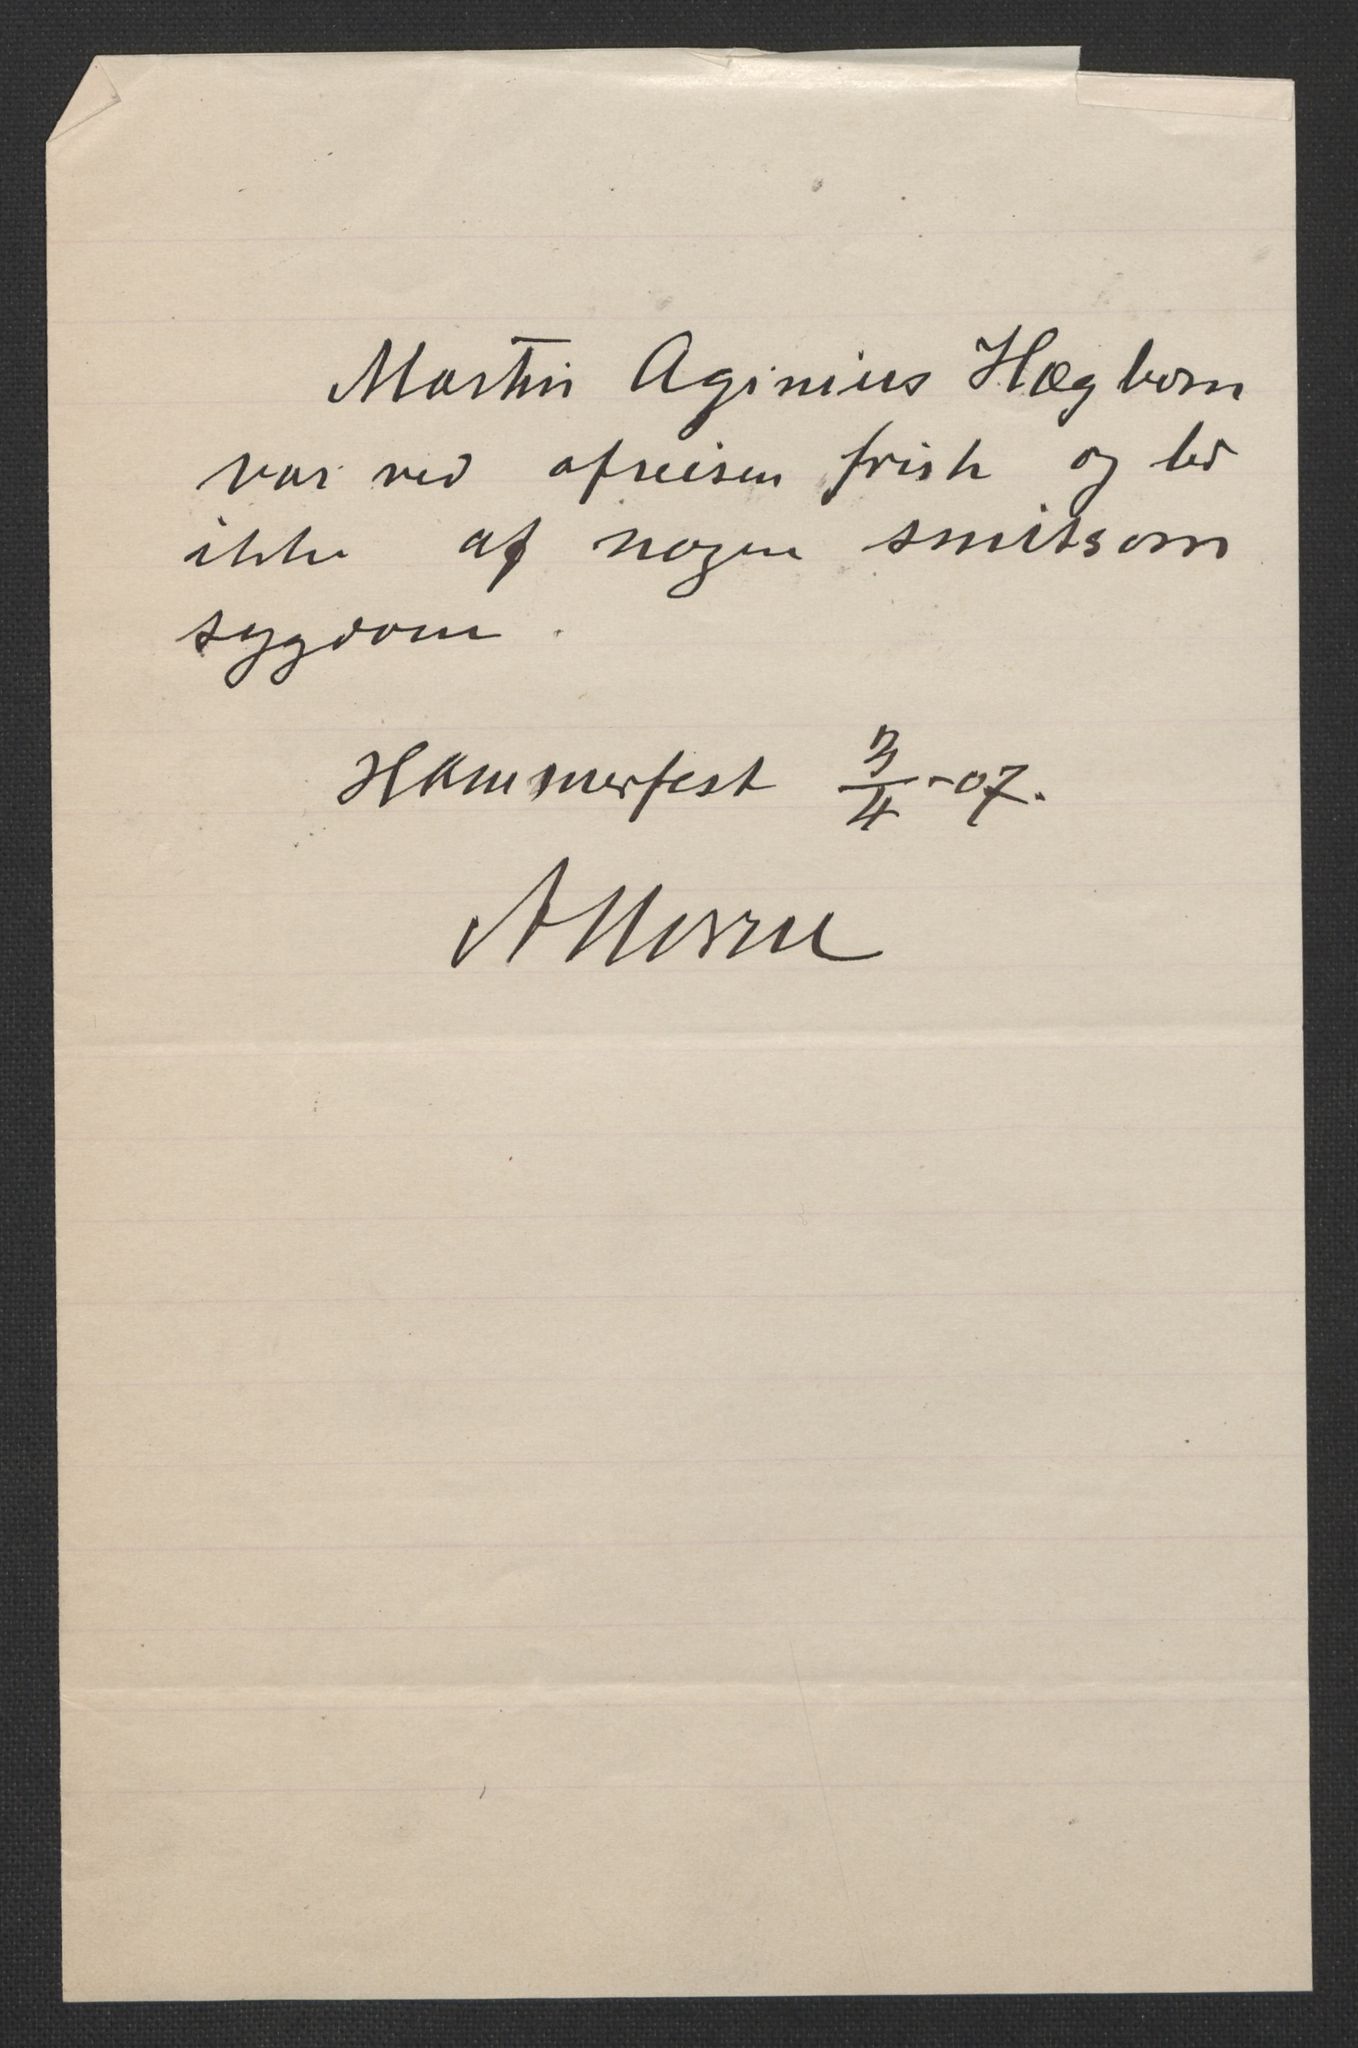 Martin Aginius Hægbom
var ved afreisen frisk og led
ikke af nogen smitsom
sygdom.
Hammerfest 3/4 -07.